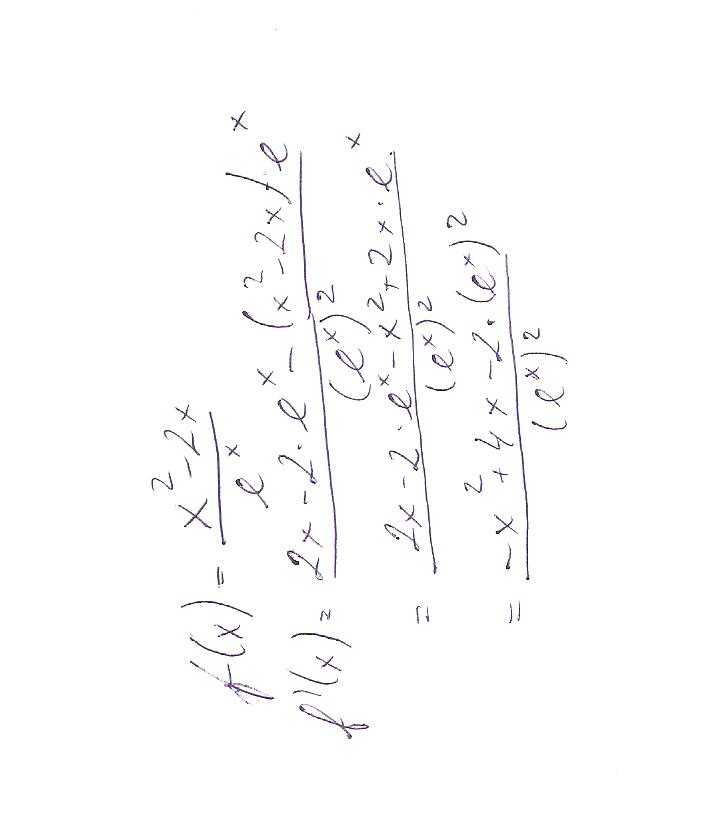 f(x) = (x² - 2x) / e^x
f'(x) = (2x - 2 · e^x - (x² - 2x) · e^x) / (e^x)²
= (2x - 2 · e^x - x² + 2x · e^x) / (e^x)²
= (-x² + 4x - 2 · (e^x)²) / (e^x)²